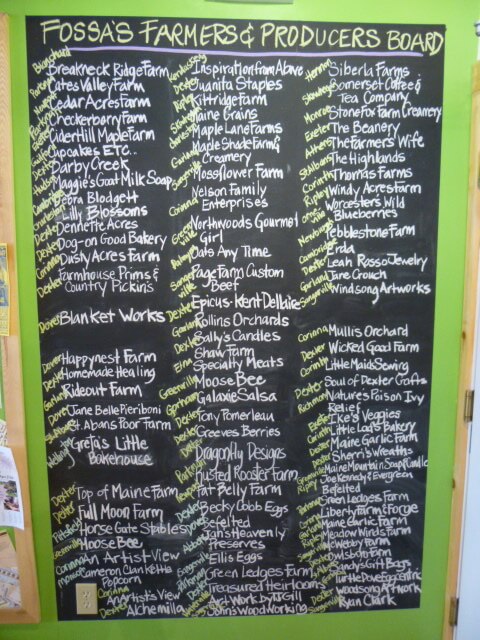 FOSSA'S FARMERS & PRODUCERS BOARD
Blanchard Breakneck Ridge Farm
Cates Valley Farm
Cedar Acres Farm
Checkerberry Farm
Cider Hill Maple Farm
Cupcakes ETC..
Darby Creek
Maggie's Goat Milk Soap
Debra Blodgett
Lilly Blossoms
Dexter Dennette Acres
Dexter Dog-on Good Bakery
Corinna Dusty Acres Farm
Dexter Farmhouse Prims &
Country Pickin's
Dover Blanket Works
Dover Happynest Farm
Dexter Homemade Healing
Garland Rideout Farm
Dover Jane Belle Pieriboni
St Albans St Albans Poor Farm
Greta's Little
Bakehouse
Dexter Top of Maine Farm
Dexter Full Moon Farm
Pittsfield Horse Gate Stables
Hoose Bee
Corinna An Artist View
Monson Cameron Clan Kettle
Popcorn
Corinna An Artist's View
Dexter Alchemilla
Inspiration from Above
Dexter Juanita Staples
Kittridge Farm
Maine Grains
Maple Lane Farms
Maple Shade Farm &
Creamery
Mossflower Farm
Corinna Nelson Family
Enterprises
Northwoods Gourmet
Girl
Oats Any Time
Page Farm Custom
Beef
Epicus-Kent Dellaire
Garland Rollins Orchards
Dexter Sally's Candles
Shaw Farm
Etna Specialty Meats
Greenville Moose Bee
Galaxie Salsa
Dexter Tony Pomerleau
Dexter Greeves Berries
Dragonfly Designs
Rusted Rooster Farm
Fat Belly Farm
Becky Cobb Eggs
Befelted
Jan's Heavenly
Preserves
Ellis Eggs
Green Ledges Farm
Treasured Heirlooms
Art Work by TJ Gill
John's Wood Working
Hermon Siberia Farms
Somerset Coffee &
Tea Company
Monroe Stone Fox Farm Creamery
Exeter The Beanery
Athens The Farmer's Wife
St Albans The Highlands
Corinth Thomas Farms
Ripley Windy Acres Farm
Worcester's Wild
Blueberries
Newburgh Pebblestone Farm
Cambridge Erda
Dexter Leah Rosso Jewelry
Garland Jane Crouch
Sangerville Windsong Artworks
Corinna Mullis Orchard
Dover Wicked Good Farm
Corinth Little Maids Sewing
Dexter Soul of Dexter Crafts
Richmond Nature's Poison Ivy
Relief
Exeter Ike's Veggies
Corinth Little Lad's Bakery
Dexter Maine Garlic Farm
Dexter Sherri's Wreaths
Maine Mountain Soap & Candle
Ripley Joe Kennedy & Evergreen
Befelted
Green Ledges Farm
Liberty Farm & Forge
Maine Garlic Farm
Meadow Winds Farm
Webby Farm
Owlsboro Farm
Sandy's Grit Bags
Turtle Dove Eggcentric
Woodsong Artwork
Ryan Clark